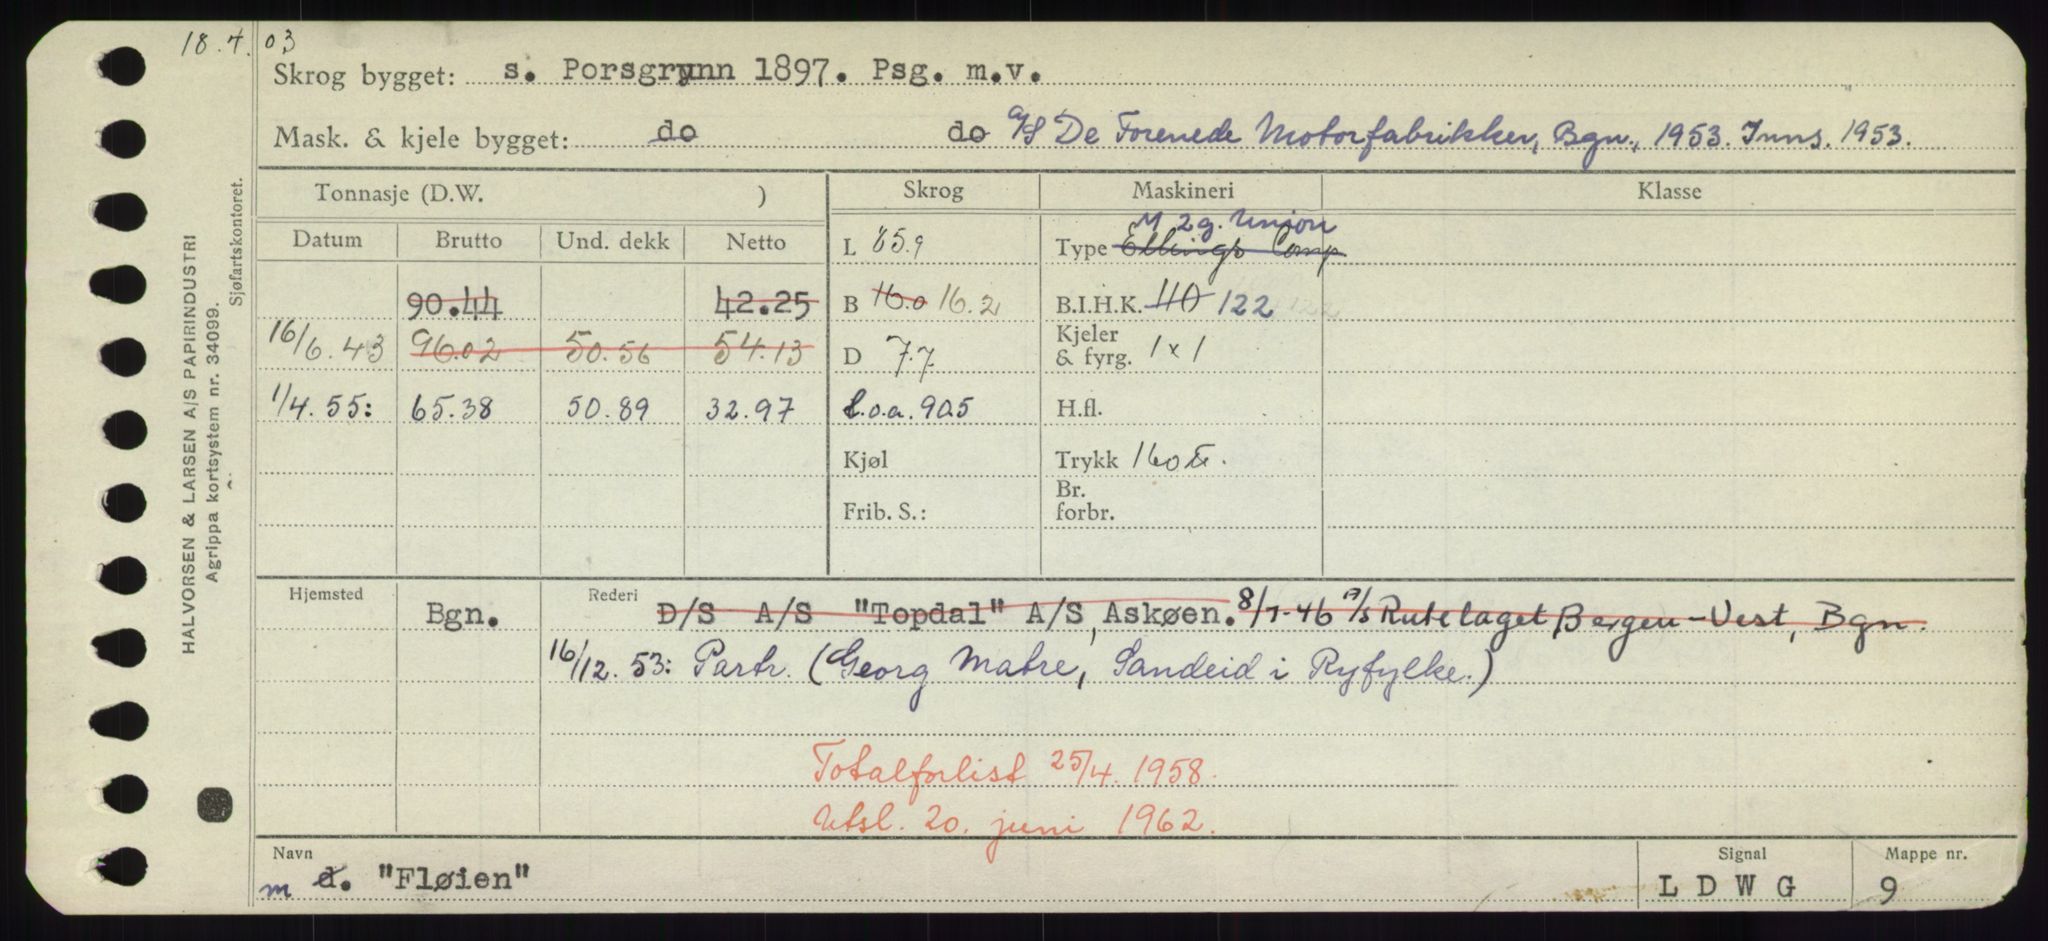 18.4.03
Skrog bygget: s. Porsgrynn 1897. Psg. m.v.
Mask. & kjele bygget: do do A/S De Forenede Motorfabrikker, Bgn., 1953. Inns. 1953.
Tonnasje (D.W. ) Skrog Maskineri Klasse
Datum Brutto Und. dekk Netto L 85.9 Type Ellings Comp M 2g. Union
90.44 42.25 B 16.0 16.2 B.I.H.K. 110 122
16/6.43 96.02 50.56 54.13 D 7.7 Kjeler & fyrg. 1x1
1/4.55: 65.38 50.89 32.97 L.o.a. 90.5 H.fl.
Kjøl Trykk 160 tt.
Frib. S.: Br. forbr.
Hjemsted Bgn. Rederi D/S A/S "Topdal" A/S, Askøen. 8/7-46 A/S Rutelaget Bergen-Vest, Bgn.
16/12.53: Partr. (Georg Matre, Sandeid i Ryfylke.)
Totalforlist 25/4. 1958.
Utsl. 20. juni 1962.
Navn Signal Mappe nr.
m d. "Fløien" L D W G 9
HALVORSEN & LARSEN A/S PAPIRINDUSTRI
Agrippa kortsystem nr. 34099.
Sjøfartskontoret.